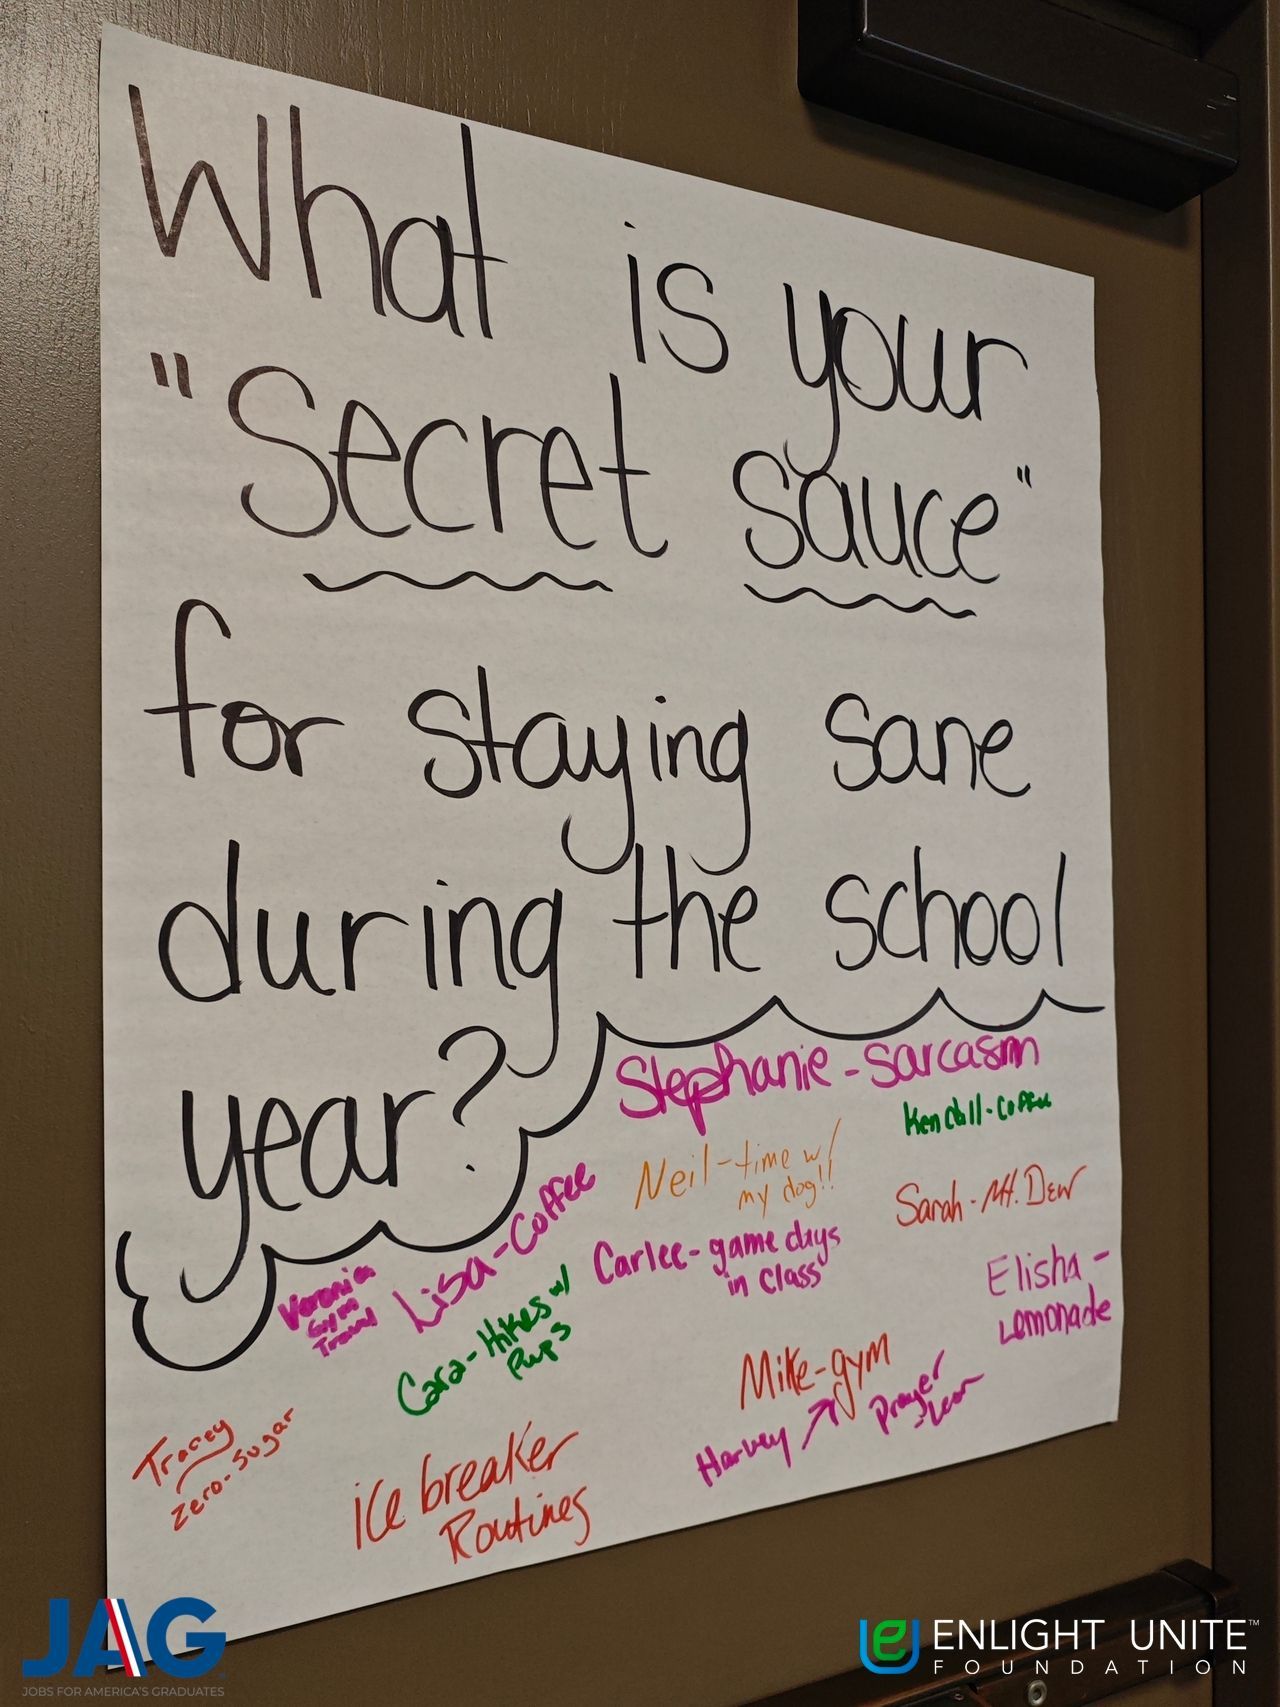 What is your
"Secret sauce"
for staying sane
during the school
year?
Stephanie - sarcasm
Kendall - Coffee
Neil - time w/
my dog!!
Sarah - Mt. Dew
Lisa - Coffee
Carlee - game days
in class
Elisha -
Lemonade
Veronica
Gym
Travel
Cara - Hikes w/
Pups
Mike - gym
Harvey ↗
Prayer
Tracey
Zero - Sugar
ice breaker
Routines
JAG
JOBS FOR AMERICA'S GRADUATES
ENLIGHT UNITE™
FOUNDATION